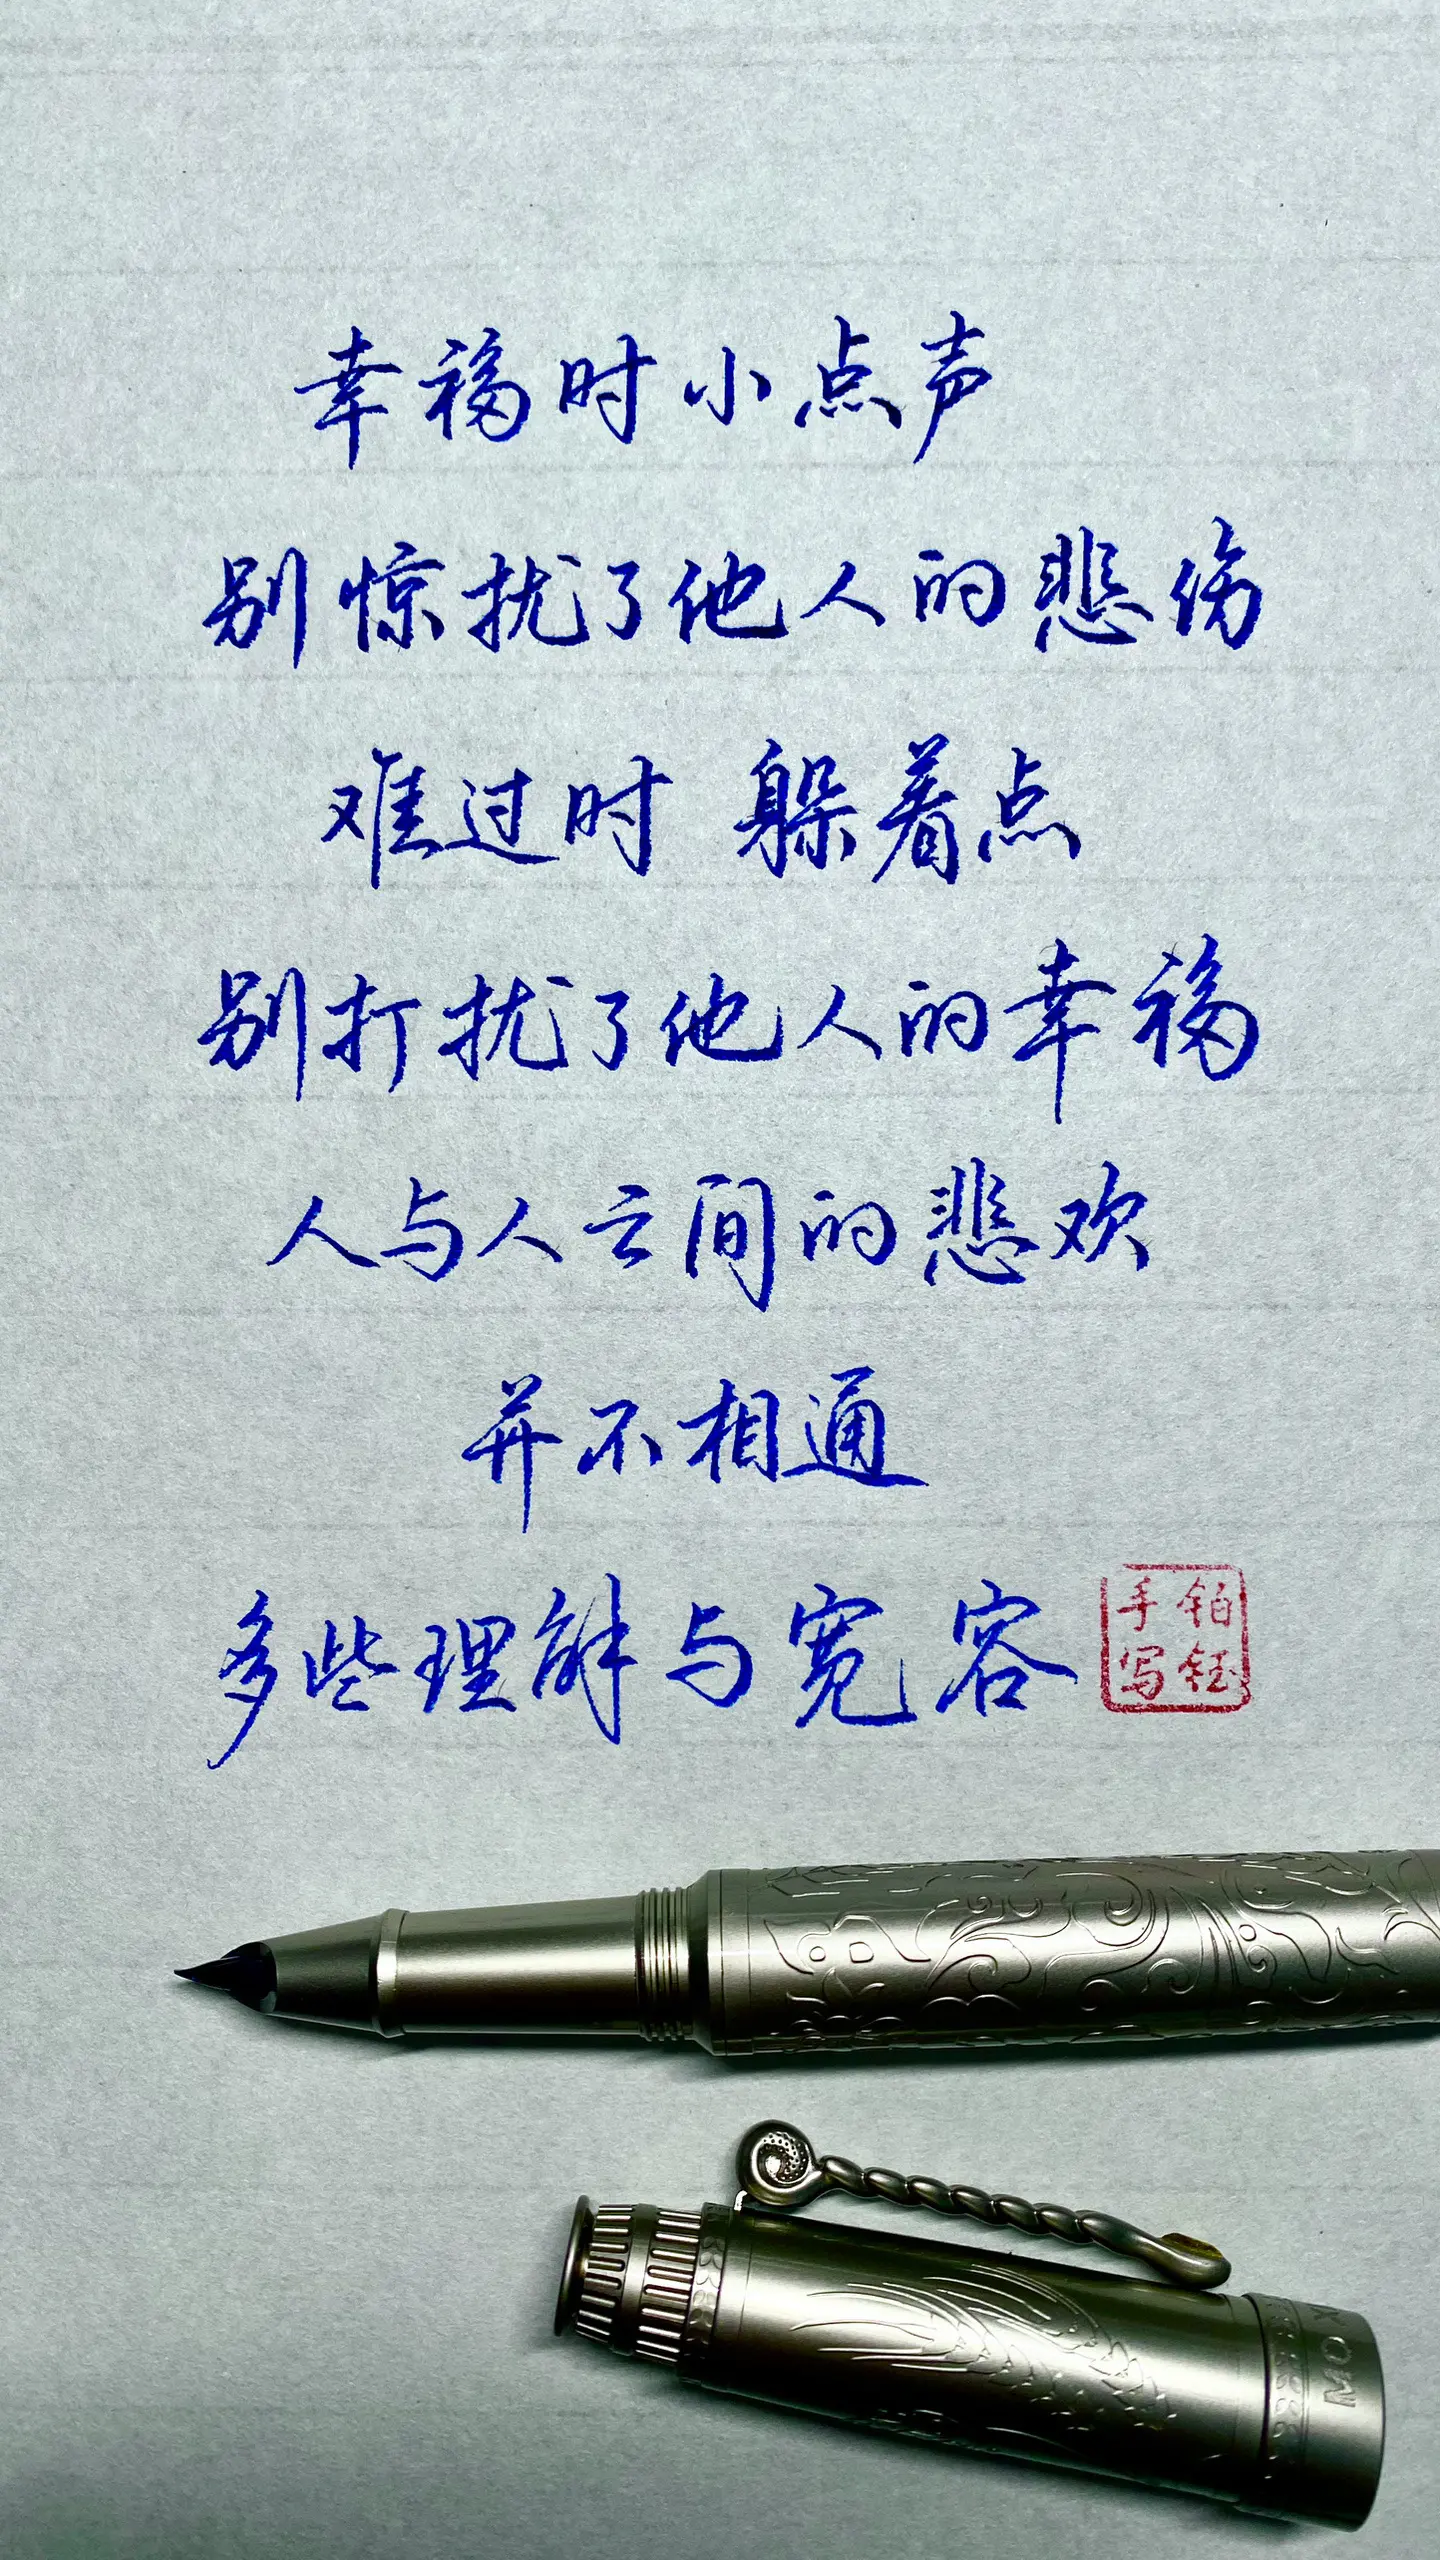 幸福时小点声
别惊扰了他人的悲伤
难过时 躲着点
别打扰了他人的幸福
人与人之间的悲欢
并不相通
多些理解与宽容
铂钰
手写
MO